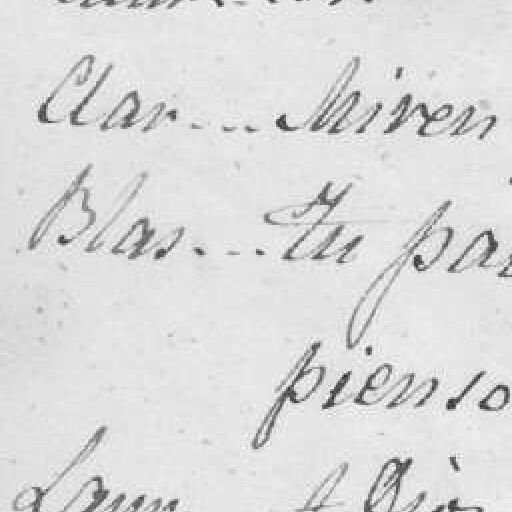 Clar... Miren
Blas... Tu pa
pienso
Laur A Dios